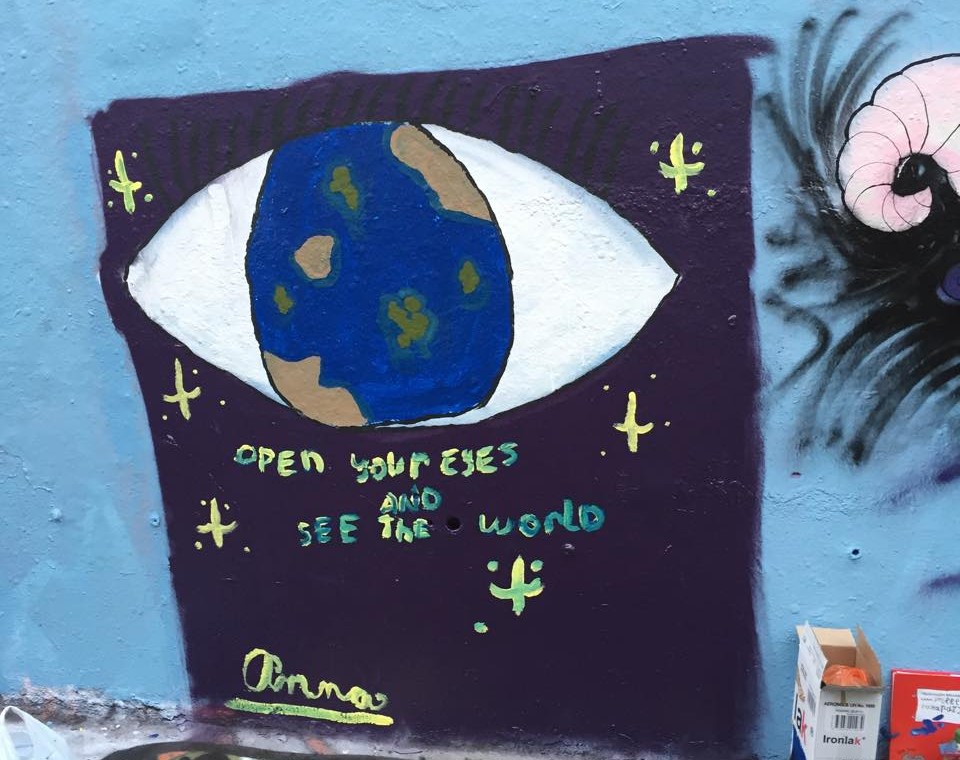 OPEN YOUR EYES
AND
SEE THE WORLD
Anna
Ironlak